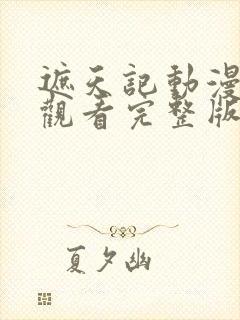 遮天記動漫
觀看完整版
夏夕幽